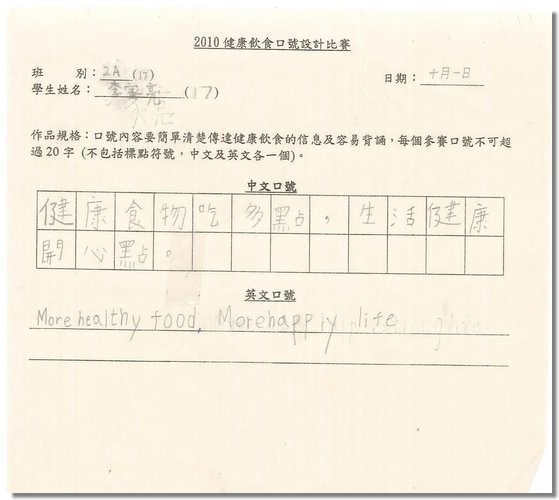 2010 健康飲食口號設計比賽
班　別：2A (17)
日期：十月一日
學生姓名：李家亮 (17)
作品規格：口號內容要簡單清楚傳達健康飲食的信息及容易背誦，每個參賽口號不可超
過20字 (不包括標點符號，中文及英文各一個)。
中文口號
健康食物吃多點，生活健康
開心點。
英文口號
More healthy food, More happly life